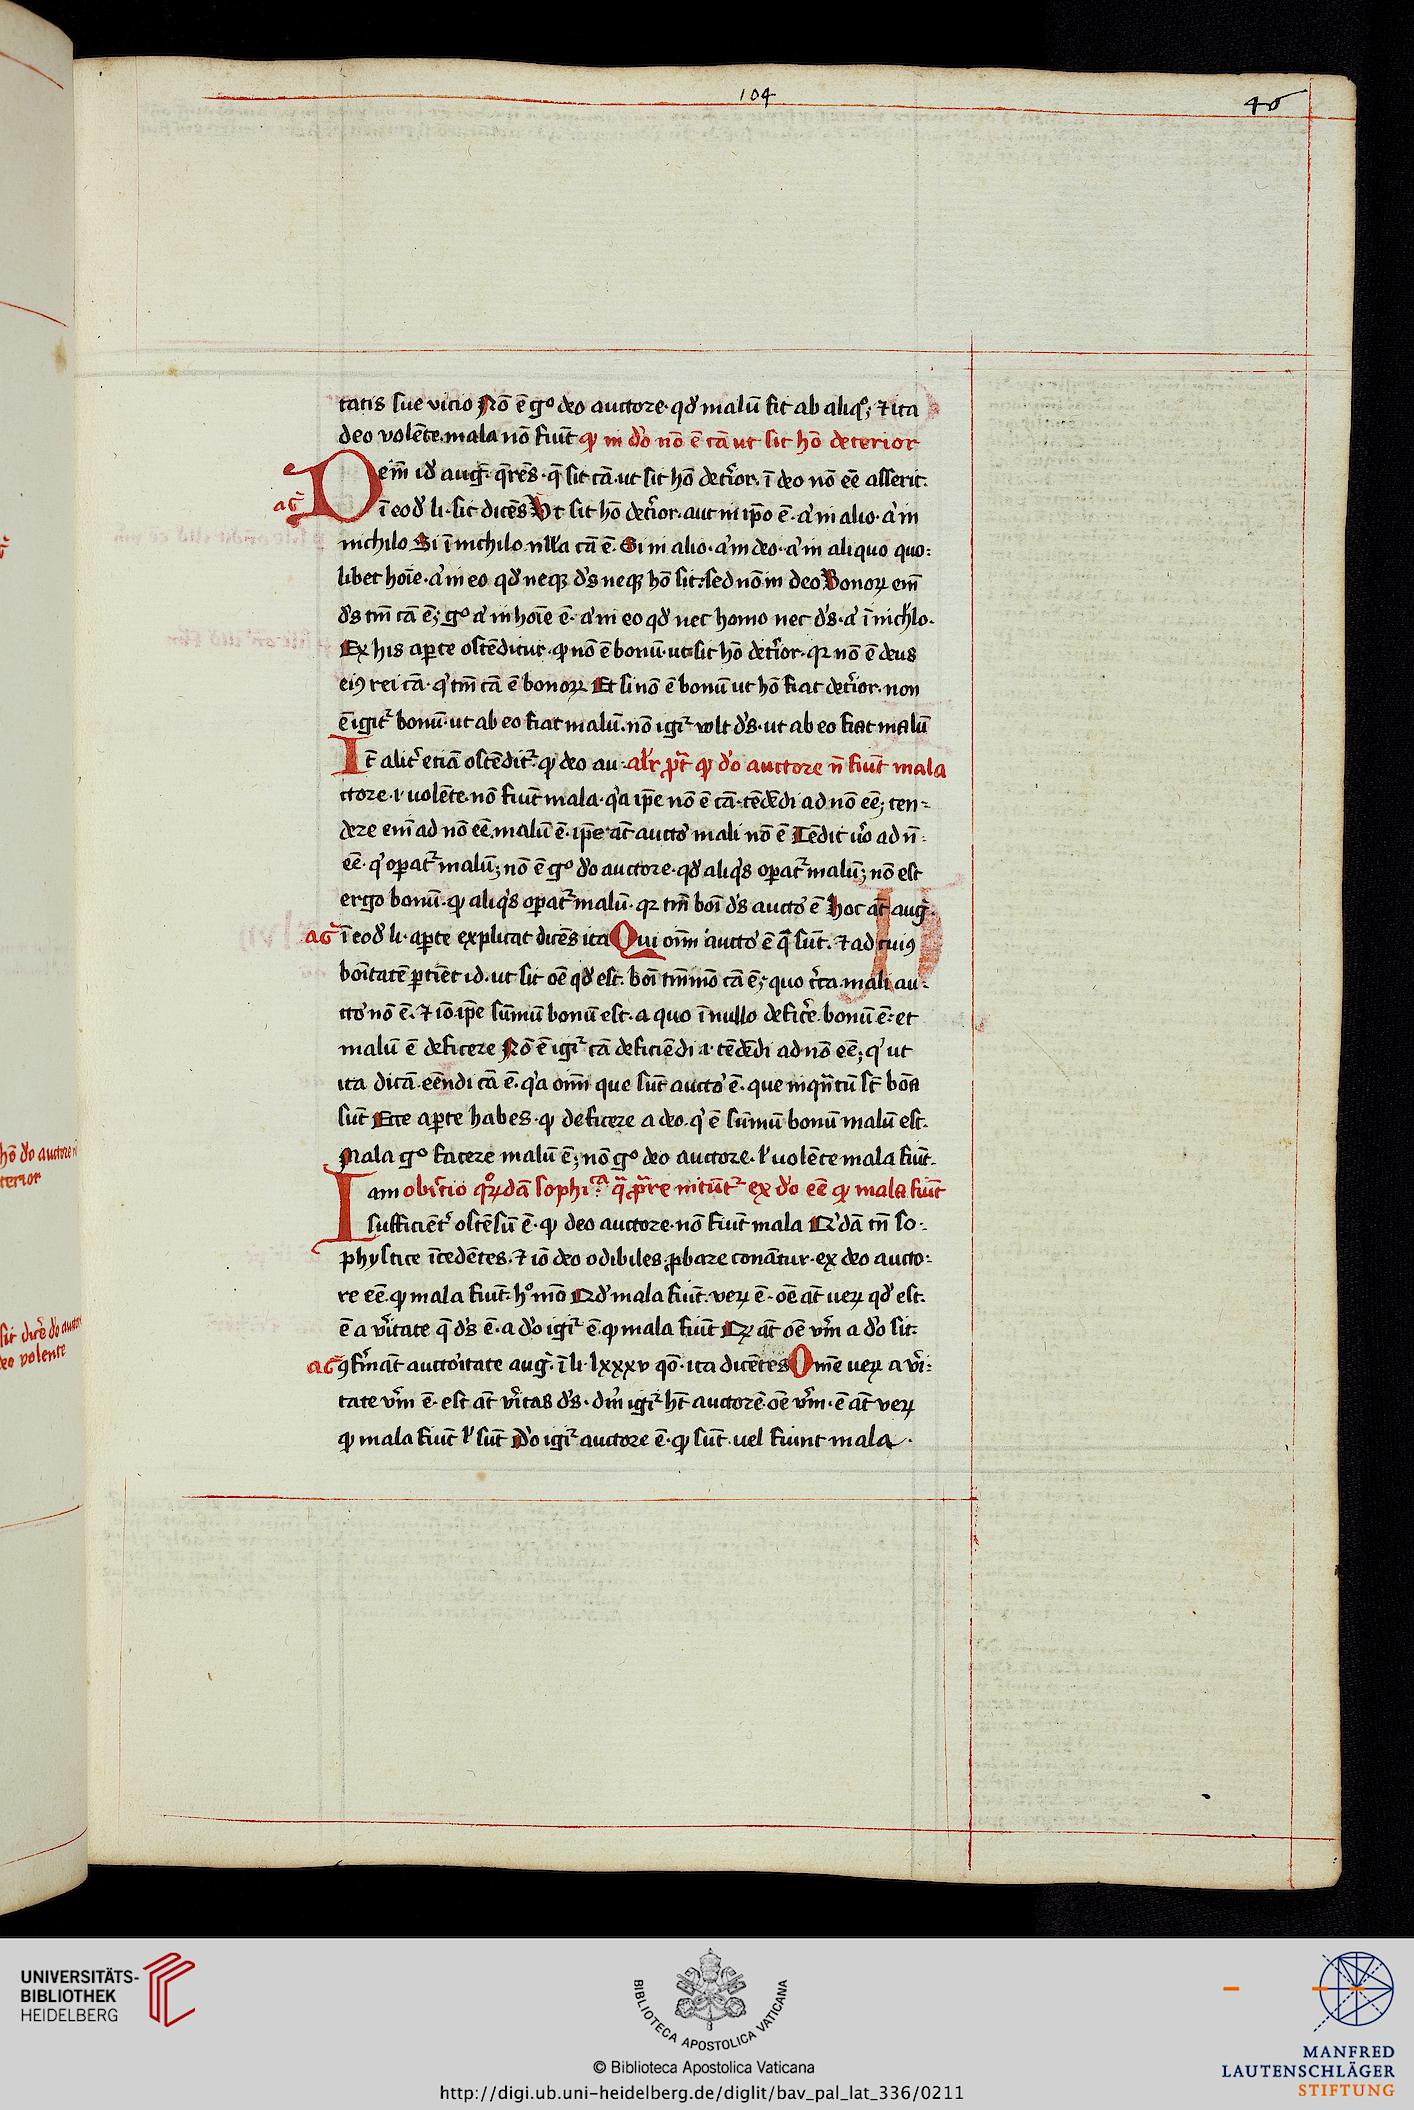 104
46
tatis sue vicio Nō ē gº deo auctore · qd' malū fit ab aliqº; ⁊ ita
deo volēte mala nō fiūt ꝙ in d'o nō ē cā ut sit hō deterior
Deīn id' aug̃ · q̃rēs · q̄ sit cā · ut sit hō det'ior · ī deo nō eē asserit ·
aḡ
ī eod' li · sic dicēs Vt sit hō det'ior · aut in ip̄o ē · a' in alio · a' in
nichilo Si ī nichilo nulla cā ē · Si in alio · a' in deo · a' in aliquo quo:
libet hoīe · a' in eo qd' neqꝫ d's neqꝫ hō sit · sed nō in deo Bonoꝝ em̄
d's tm̄ cā ē; gº a' in hoīe ē · a' in eo qd' nec homo nec d's · a' ī nich'lo ·
Ex his aꝑte ostēditur · ꝙ nō ē bonū · ut sit hō det'ior · qꝛ nō ē deus
eiꝰ rei cā · q' tm̄ cā ē bonoꝝ Et si nō ē bonū ut hō fiat det'ior · non
ē igit² bonū · ut ab eo fiat malū · nō igi² vult d's · ut ab eo fiat malū
It̄ alit' etiā ostēdit² · ꝙ deo au · al'r ꝓt̄ ꝙ d'o auctore n̄ fiūt mala
ctore · ł uolēte nō fiūt mala · q'a ip̄e nō ē cā · tēdēdi ad nō eē; ten-
dere em̄ ad nō eē malū ē · ip̄e at̄ aucto' mali nō ē Tēdit u'o ad n̄ ·
eē · q' opat² malū; nō ē gº d'o auctore · qd' aliq's opat² malū; nō est
ergo bonū · ꝙ aliq's opat² malū · qꝛ tm̄ boī d's aucto' ē Hoc at̄ aug̃ ·
aḡ
ī eod' li · aꝑte explicat dicēs ita Qui oīm aucto' ē q̄ sūt · ⁊ ad cuiꝰ
boītatē ꝑtiēt id · ut sit oē qd' est · boī tm̄mō cā ē; quo c'ca mali au-
cto' nō ē · ⁊ iō ip̄e sūmū bonū est · a quo ī nullo defic'e bonū ē · et
malū ē deficere Nō ē igi² cā deficiēdi · i · tēdēdi ad nō eē; q' ut
ita dicā · eēndi cā ē · q'a oīm que sūt aucto' ē · que inqn̄tū st̄ bōa
sūt Ecce aꝑte habes · ꝙ deficere a deo · q' ē sūmū bonū malū est ·
Mala gº facere malū ē; nō gº deo auctore · ł uolēte mala fiūt ·
Iam obi'cio q'rdā sophiᵃ · q̄ ꝓ̄re nitūt² ex d'o eē ꝙ mala fiūt
sufficiēt' ostēsū ē · ꝙ deo auctore · nō fiūt mala Q'dā tn̄ so-
phystice īcedētes · ⁊ iō deo odibiles ꝓbare conātur · ex deo aucto:
re eē · ꝙ mala fiūt · hº mō Qd' mala fiūt · verꝝ ē · oē at̄ uerꝝ qd' est ·
ē a v'itate q̄ d's ē · a d'o igi² ē · ꝙ mala fiūt Qꝛ at̄ oē v'm a d'o sit ·
aḡ
ꝯf'māt aucto'itate aug̃ · ī li · lxxxv qō · ita dicētes Omē uerꝝ a v'i:
tate v'm ē · est at̄ v'itas d's · dm' igi² h't auctorē · oē v'm · ē at̄ verꝝ
ꝙ mala fiūt ł sūt D'o igi² auctore ē · ꝙ sūt uel fiunt mala ·
UNIVERSITÄTS-
BIBLIOTHEK
HEIDELBERG
BIBLIOTECA APOSTOLICA VATICANA
© Biblioteca Apostolica Vaticana
http://digi.ub.uni-heidelberg.de/diglit/bav_pal_lat_336/0211
MANFRED
LAUTENSCHLÄGER
STIFTUNG